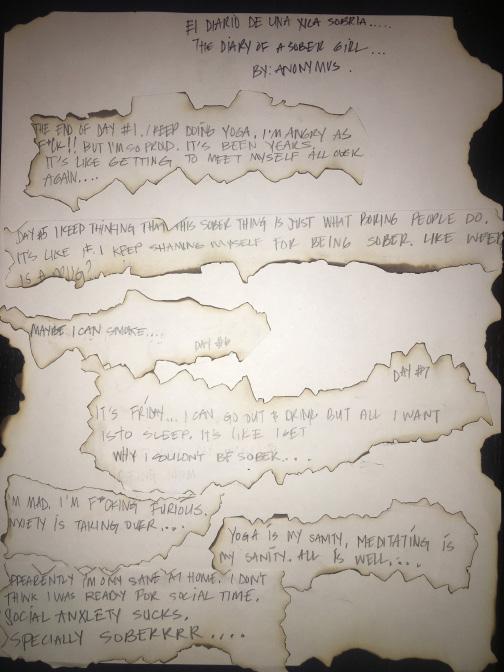 El DIARIO DE UNA XICA SOBRIA.....
THE DIARY OF A SOBER GIRL...
BY: ANONYMUS.
THE END OF DAY #1. I KEEP DOING YOGA. I'M ANGRY AS
F*CK!! BUT I'M SO PROUD. IT'S BEEN YEARS.
IT'S LIKE GETTING TO MEET MYSELF ALL OVER
AGAIN....
DAY #5 I KEEP THINKING THAT THIS SOBER THING IS JUST WHAT BORING PEOPLE DO.
IT'S LIKE IF I KEEP SHAMING MYSELF FOR BEING SOBER. LIKE WEED
IS A DRUG?
MAYBE I CAN SMOKE....
DAY #6
DAY #7
IT'S FRIDAY... I CAN GO OUT & DRINK BUT ALL I WANT
IS TO SLEEP. IT'S LIKE I GET
WHY I COULDN'T BE SOBER....
I'M MAD. I'M F*CKING FURIOUS.
ANXIETY IS TAKING OVER....
YOGA IS MY SANITY, MEDITATING IS
MY SANITY. ALL IS WELL....
APPEARENTLY I'M ONLY SANE AT HOME. I DONT
THINK I WAS READY FOR SOCIAL TIME.
SOCIAL ANXIETY SUCKS.
SPECIALLY SOBERRRR....